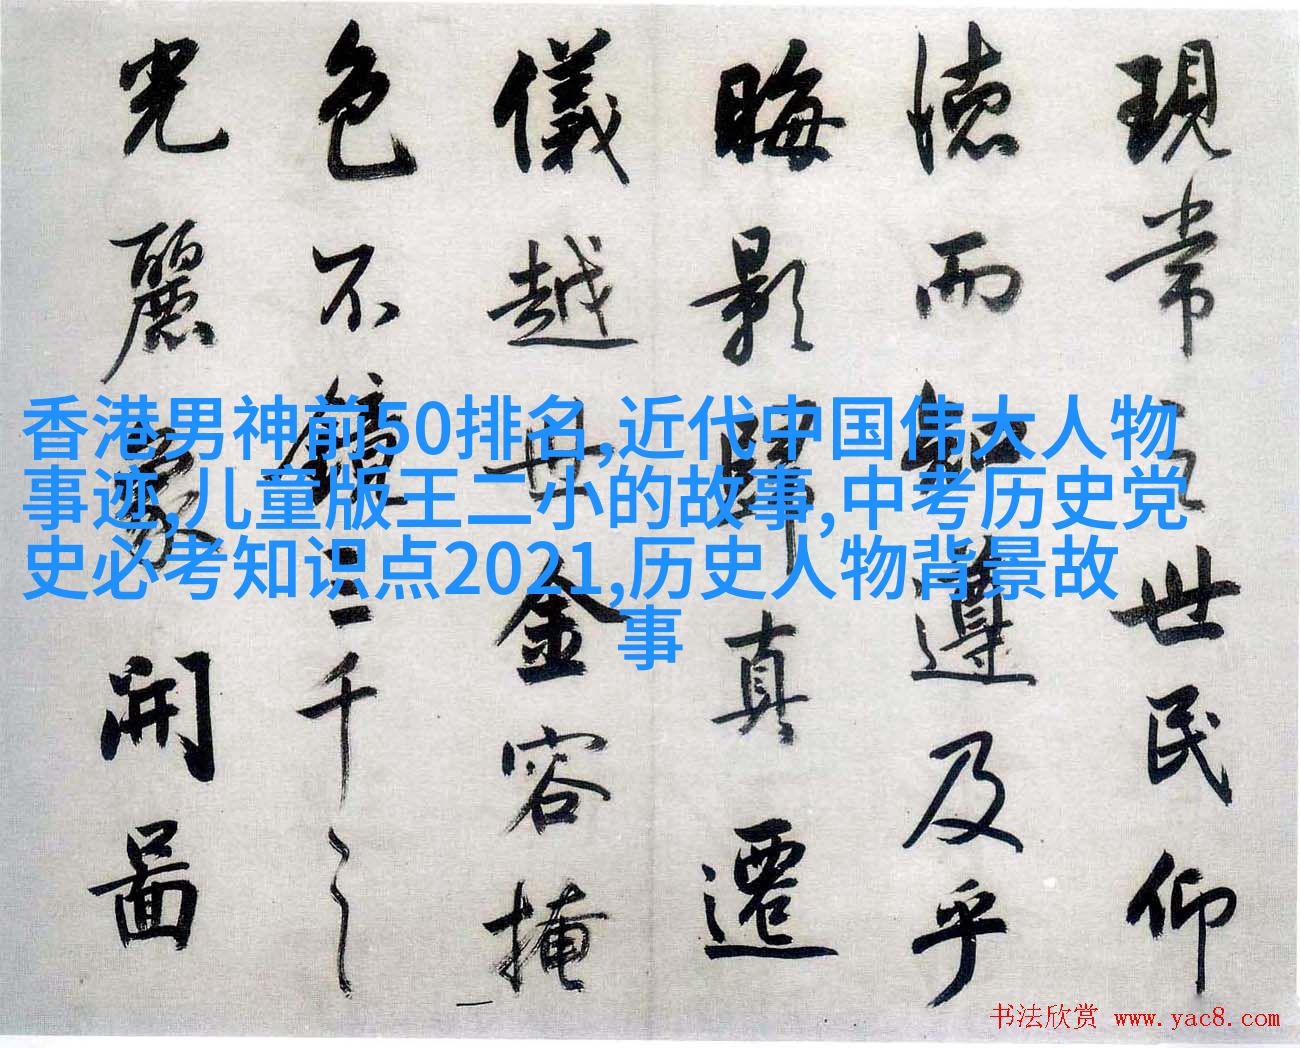 現常之世民仰
德而知遵及乎
晦影歸真遷
儀越世金容掩
色不鏡三千之
光麗象開圖
香港男神前50排名,近代中国伟大人物
事迹,儿童版王二小的故事,中考历史党
史必考知识点2021,历史人物背景故
事
书法欣赏 www.yac8.com